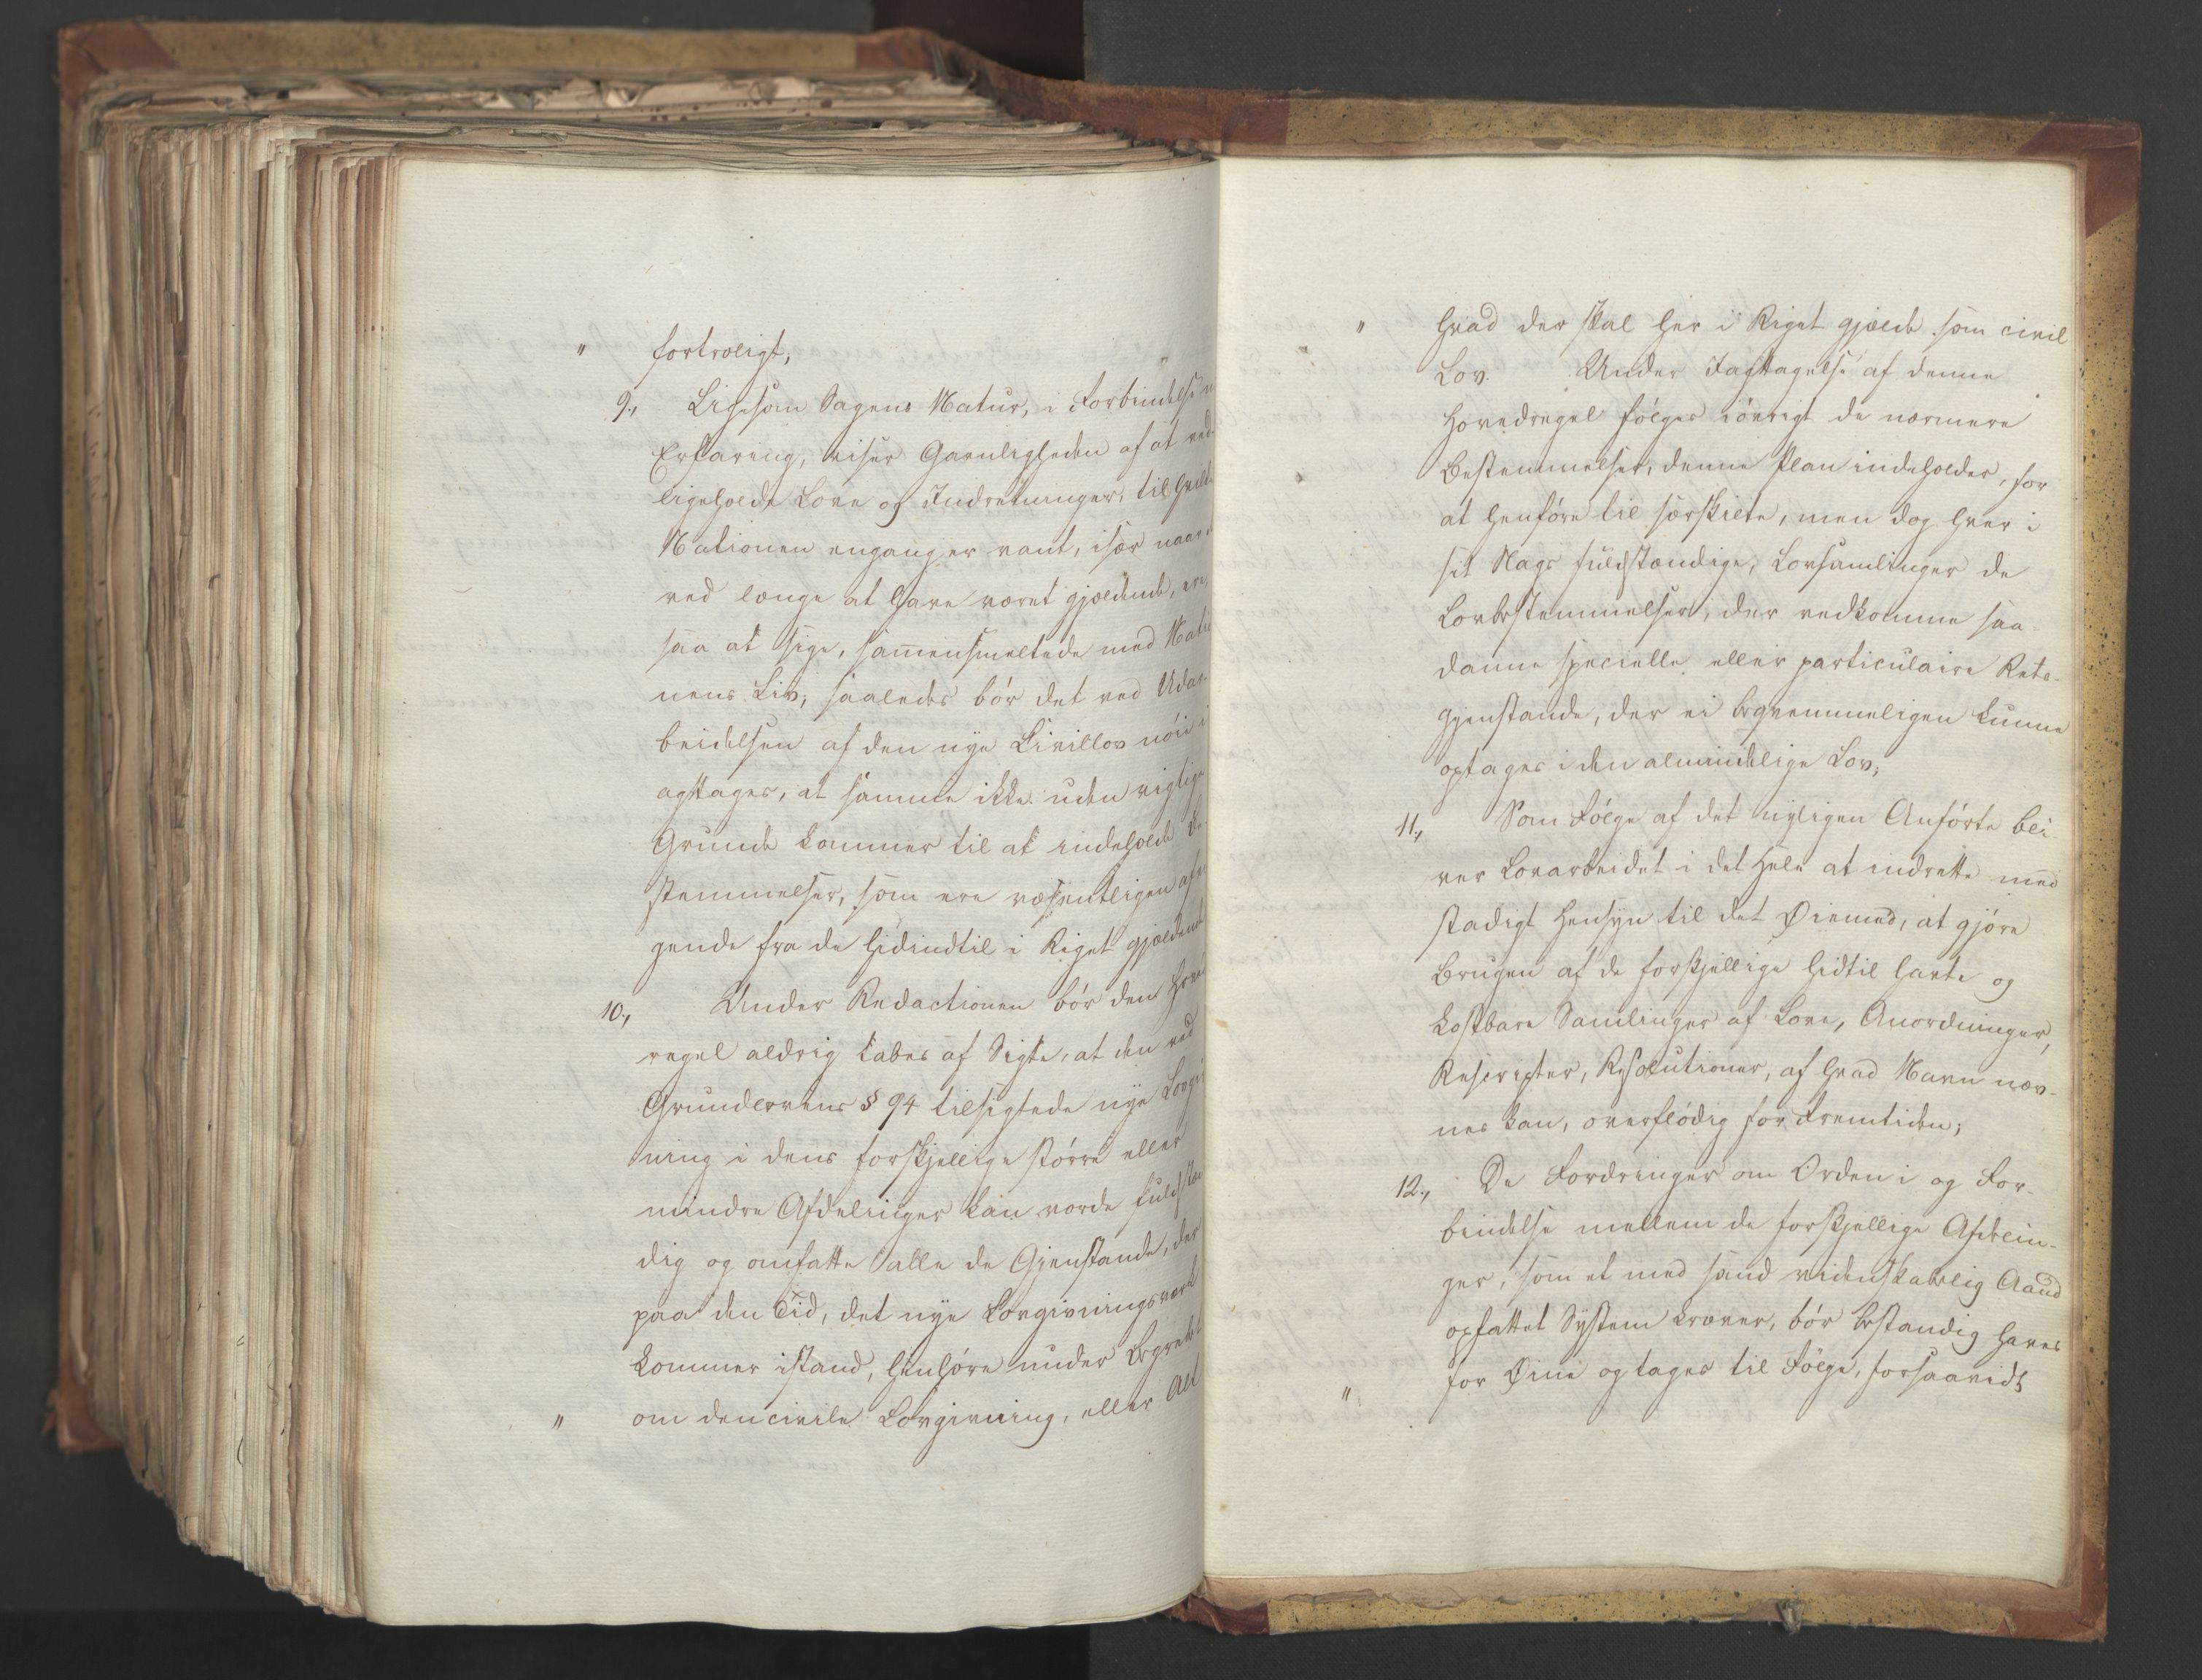 " fortroligt;
9., Ligesom Sagens Natur, i Forbindelse
Erfaring, viser Gavnligheden af at ved-
ligeholde Love og Indretninger, til hvilke
Nationen engang er vant, især naar
ved længe at have været gjældende, ere,
saa at sige, sammensmeltede med Natio
nens Liv; saaledes bör det ved Udar-
beidelsen af den nye Civillov nöie i
agttages, at samme ikke uden vigtige
Grunde kommer til at indeholde Be-
stemmelser, som ere væsentligen afvi
gende fra de hidindtil i Riget gjældende
10., Under Redactionen bör den Hoved
regel aldrig tabes af Sigte, at den ved
Grundlovens § 94 tilsigtede nye Lovgiv
ning i dens forskjellige större eller
mindre Afdelinger kan vorde fuldstæn
dig og omfatte alle de Gjenstande, der
paa den Tid, det nye Lovgivningsværk
kommer istand, henhöre under Begrebet
" om den civile Lovgivning, eller Alt
" hvad der skal her i Riget gjælde som civil
Lov. Under Iagttagelse af denne
Hovedregel fölges iövrigt de nærmere
Bestemmelser, denne Plan indeholder, for
at henföre til særskilte, men dog hver i
sit Slags fuldstændige, Lovsamlinger de
Lovbestemmelser, der vedkomme saa-
danne specielle eller particulaire Rets-
gjenstande, der ei beqvemmeligen kunne
optages i den almindelige Lov;
11., Som Fölge af det nyligen Anförte bli-
ver Lovarbeidet i det Hele at indrette med
stadigt Hensyn til det Øiemed, at gjöre
Brugen af de forskjellige hidtil havte og
kostbare Samlinger af Love, Anordninger,
Rescripter, Resolutioner, af hvad Navn næv-
nes kan, overflödig for Fremtiden;
12., De Fordringer om Orden i og For-
bindelse mellem de forskjellige Afdelin-
ger, som et med sand videnskabelig Aand
opfattet System kræver, bör bestandig haves
" for Øine og tages til Fölge, forsaavidt